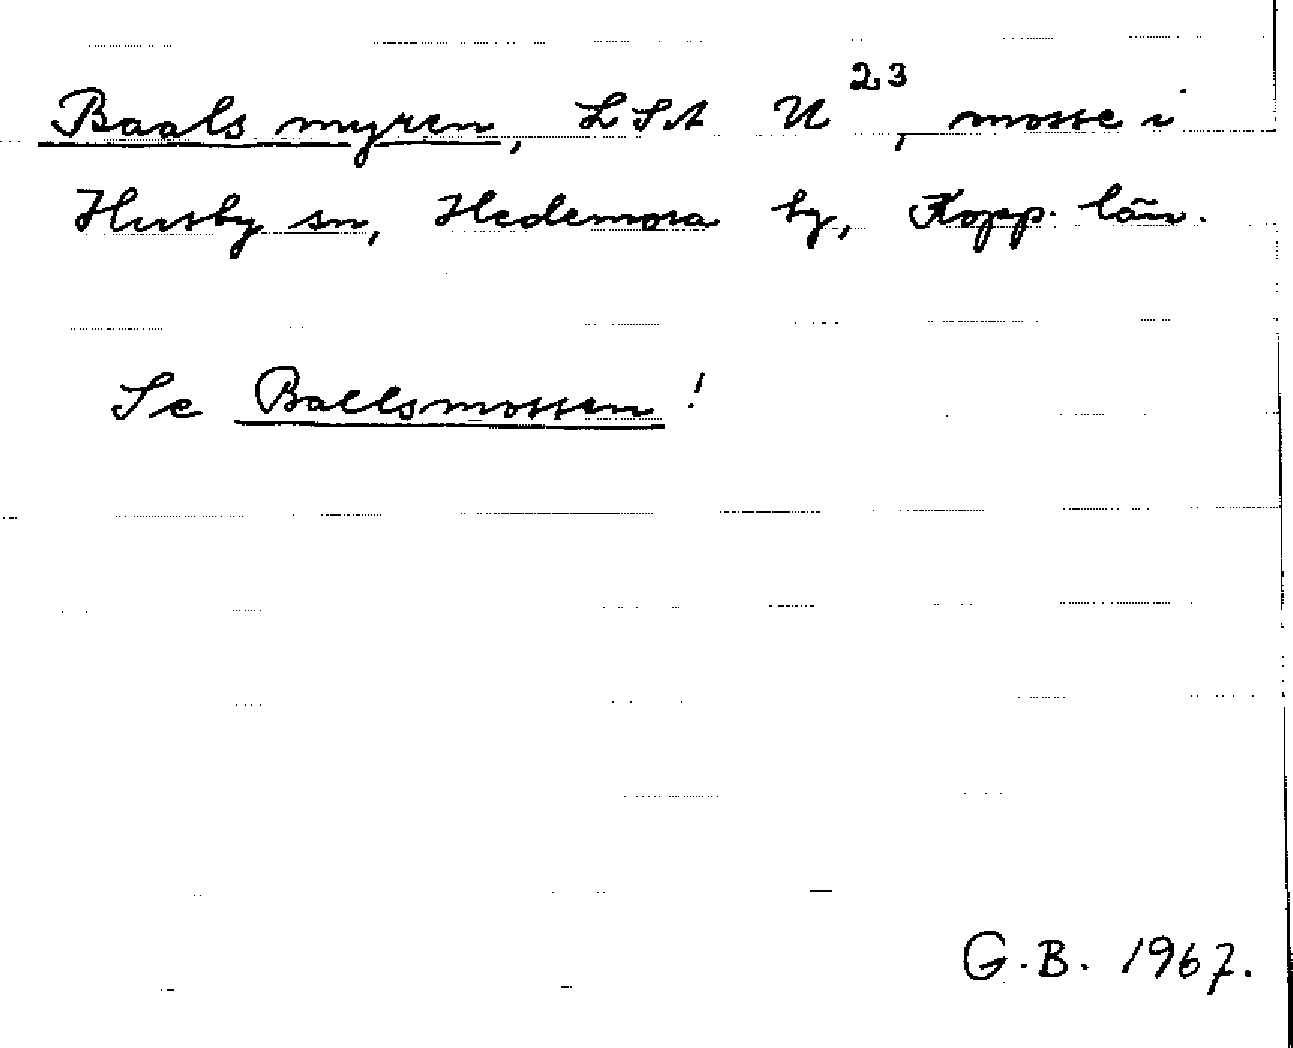 Baals myren, LSA U²³, mosse i
Husby sn, Hedemora by, Kopp. län.
Se Ballsmossen!
G.B. 1967.